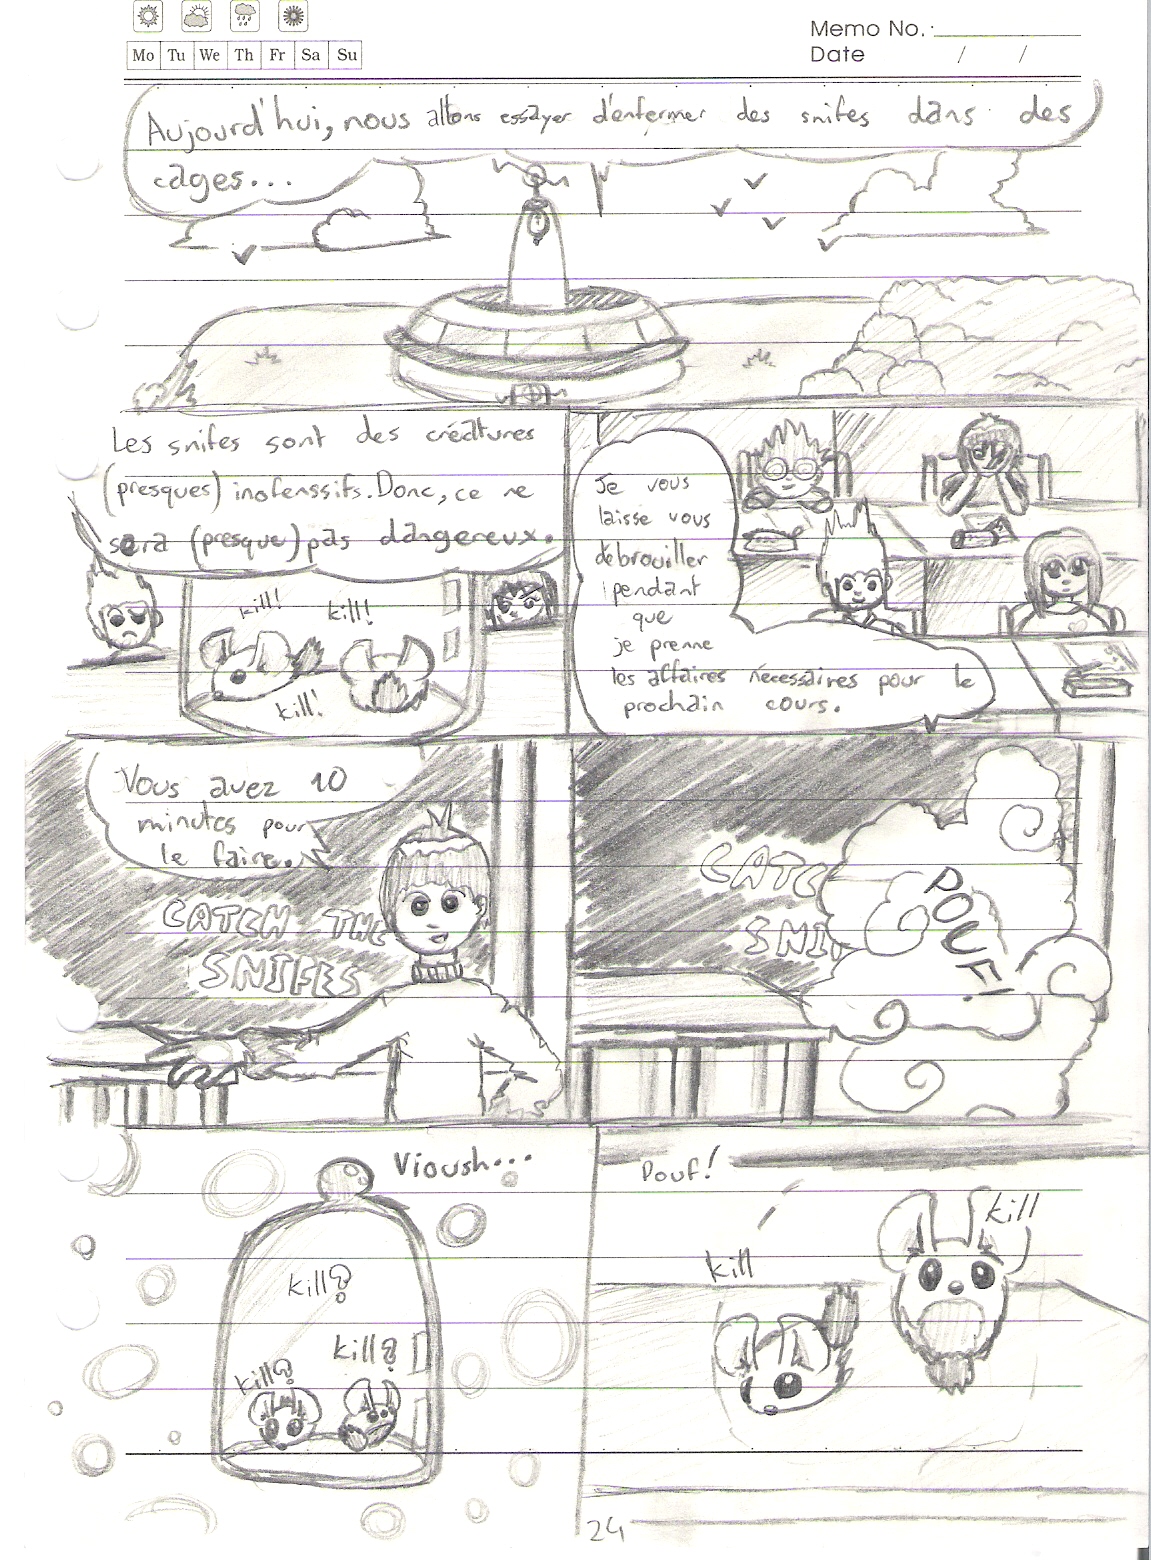 Memo No.
Mo Tu We Th Fr Sa Su
Date / /
Aujourd'hui, nous allons essayer d'enfermer des snifes dans des
cages...
Les snifes sont des créatures
(presques) inofenssifs. Donc, ce ne
sera (presque) pas dangereux.
kill!
kill!
kill!
Je vous
laisse vous
débrouiller
pendant
que
je prenne
les affaires nécessaires pour le
prochain cours.
Vous avez 10
minutes pour
le faire.
CATCH THE
SNIFES
CATC
SNI
POUF!
Vioush...
kill?
kill?
kill?
Pouf!
kill
kill
24